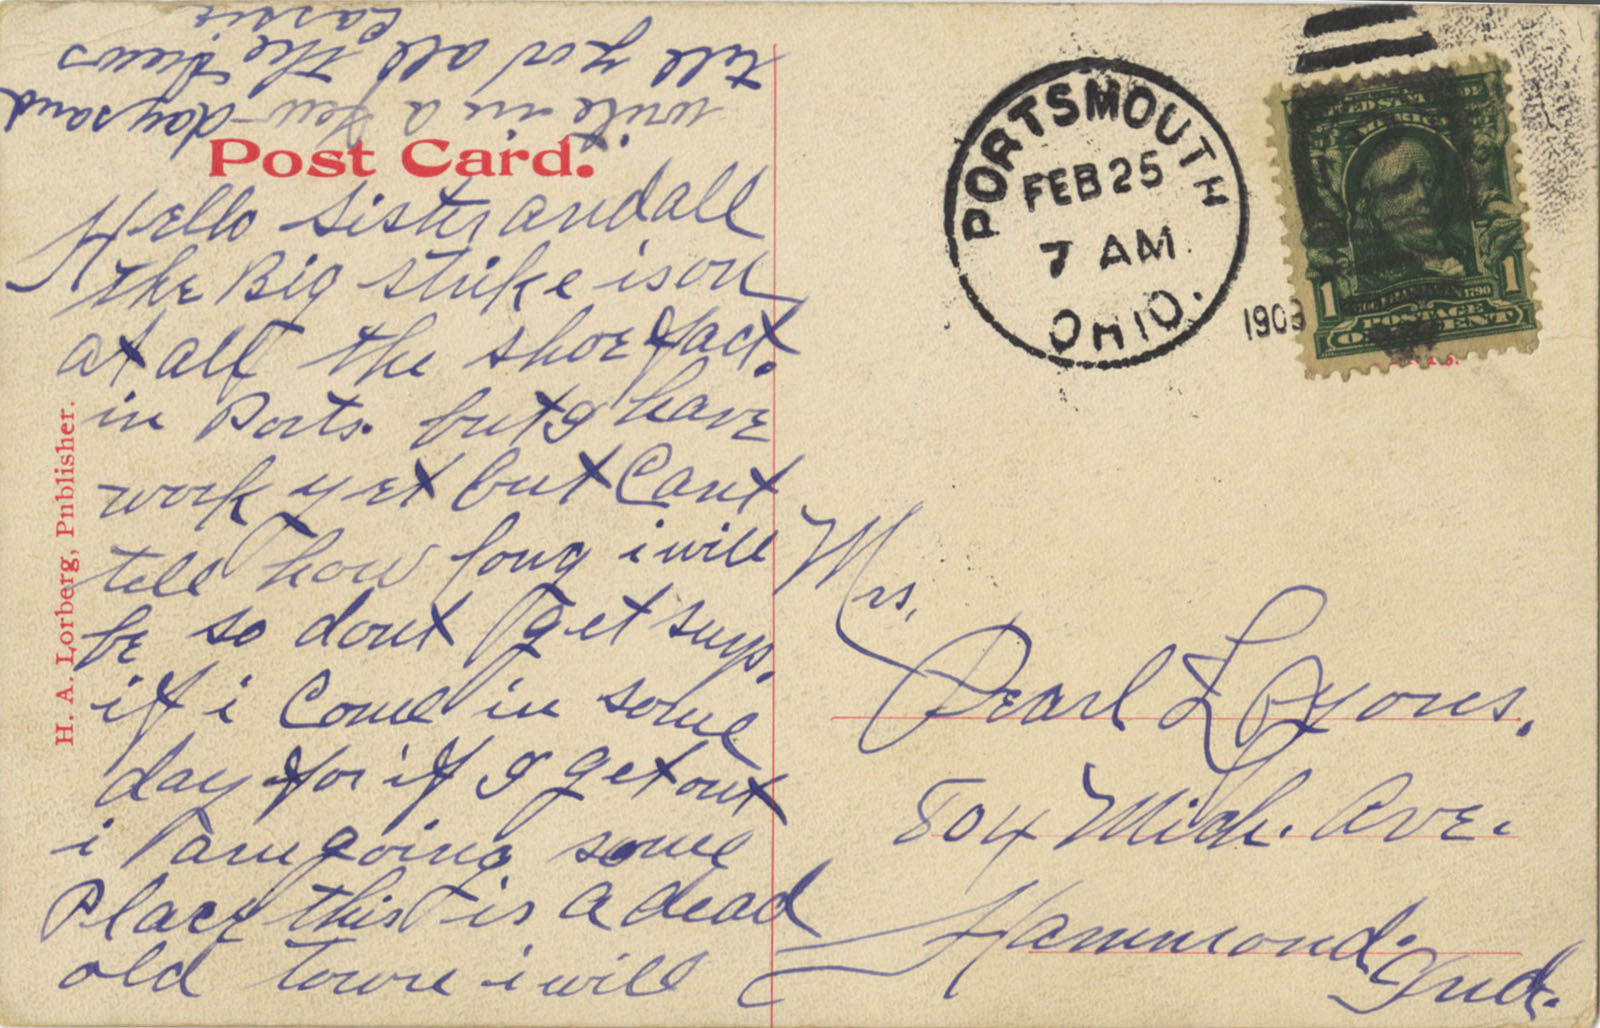 Post Card.
H. A. Lorberg, Publisher.
Hello Sister and all
the Big strike is on
at all the shoe fact.
in Ports. but I have
work yet but Cant
tell how long i will
be so dont get surp.
if i Come in some
day for if I get out
i am going some
Place this is a dead
old town i will
write in a few days and
tell you all the News
Cassie
PORTSMOUTH
FEB 25
7 AM
OHIO.
1903
UNITED STATES OF
AMERICA
1 1
POSTAGE
ONE CENT
Mrs.
Pearl Lyons.
804 Mich. Ave.
Hammond. Ind.